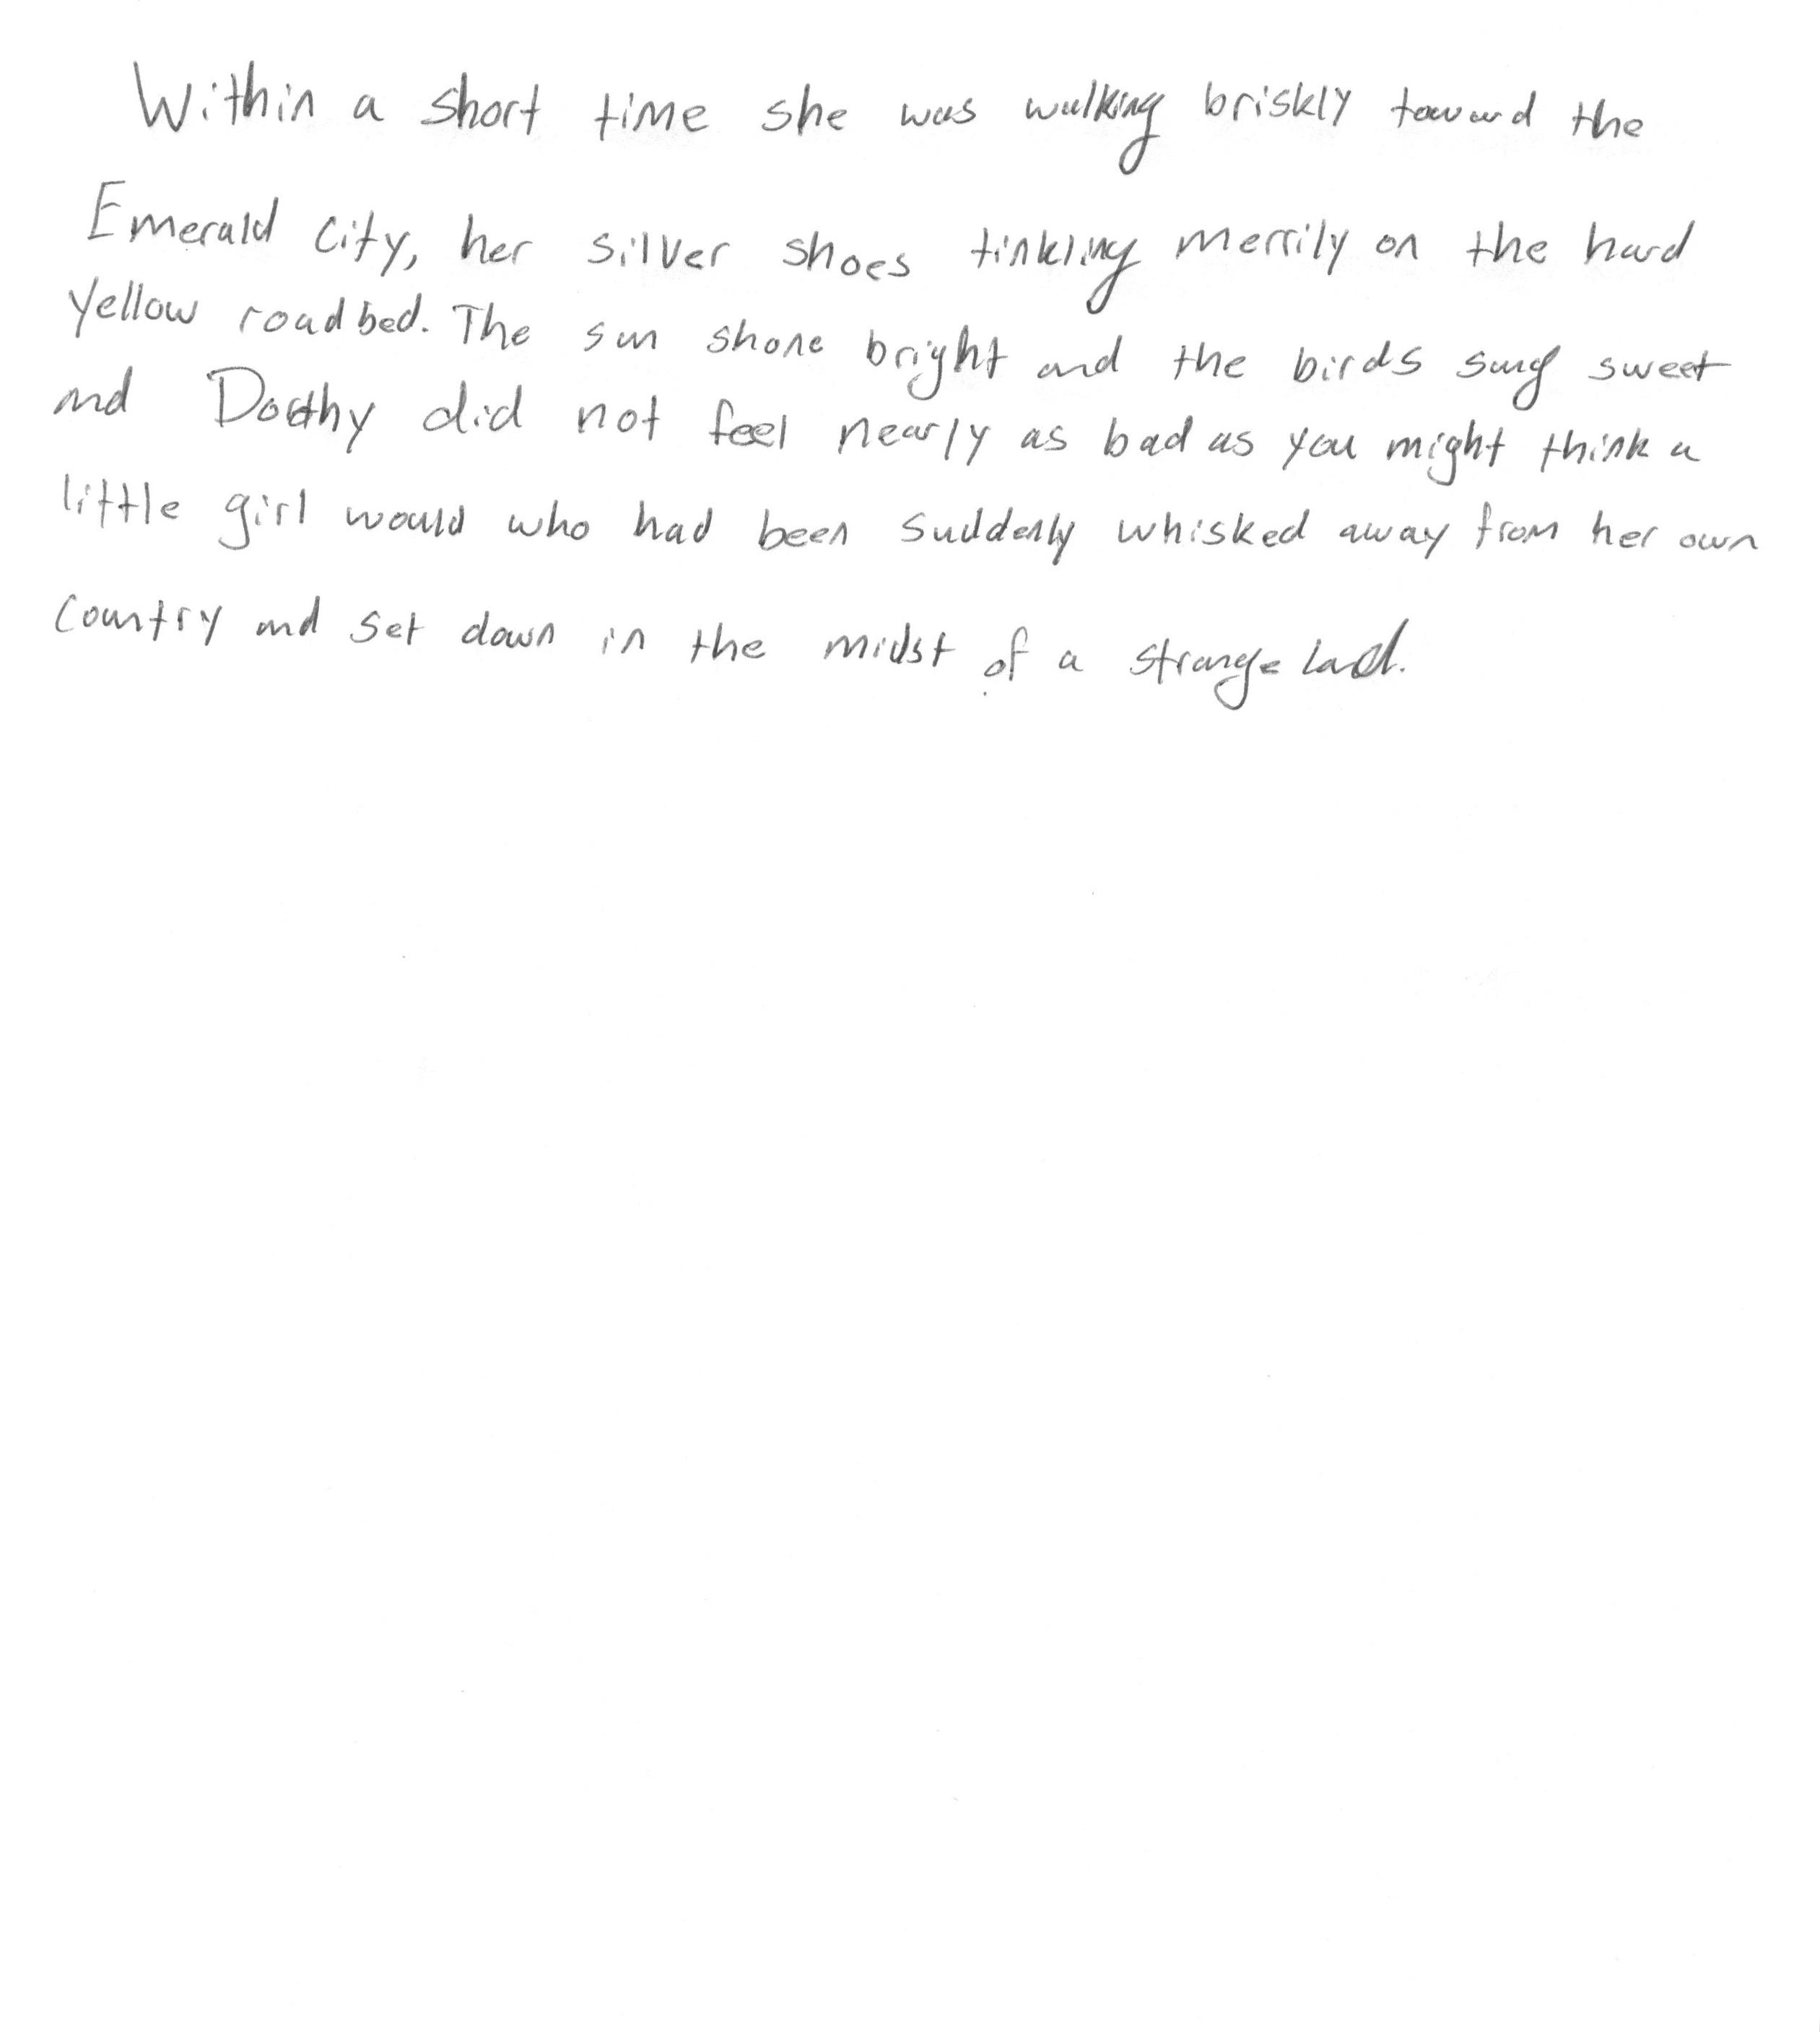 Within a short time she was walking briskly toward the
Emerald City, her silver shoes tinkling merrily on the hard
yellow roadbed. The sun shone bright and the birds sung sweet
and Dorothy did not feel nearly as bad as you might think a
little girl would who had been suddenly whisked away from her own
country and set down in the midst of a strange land.